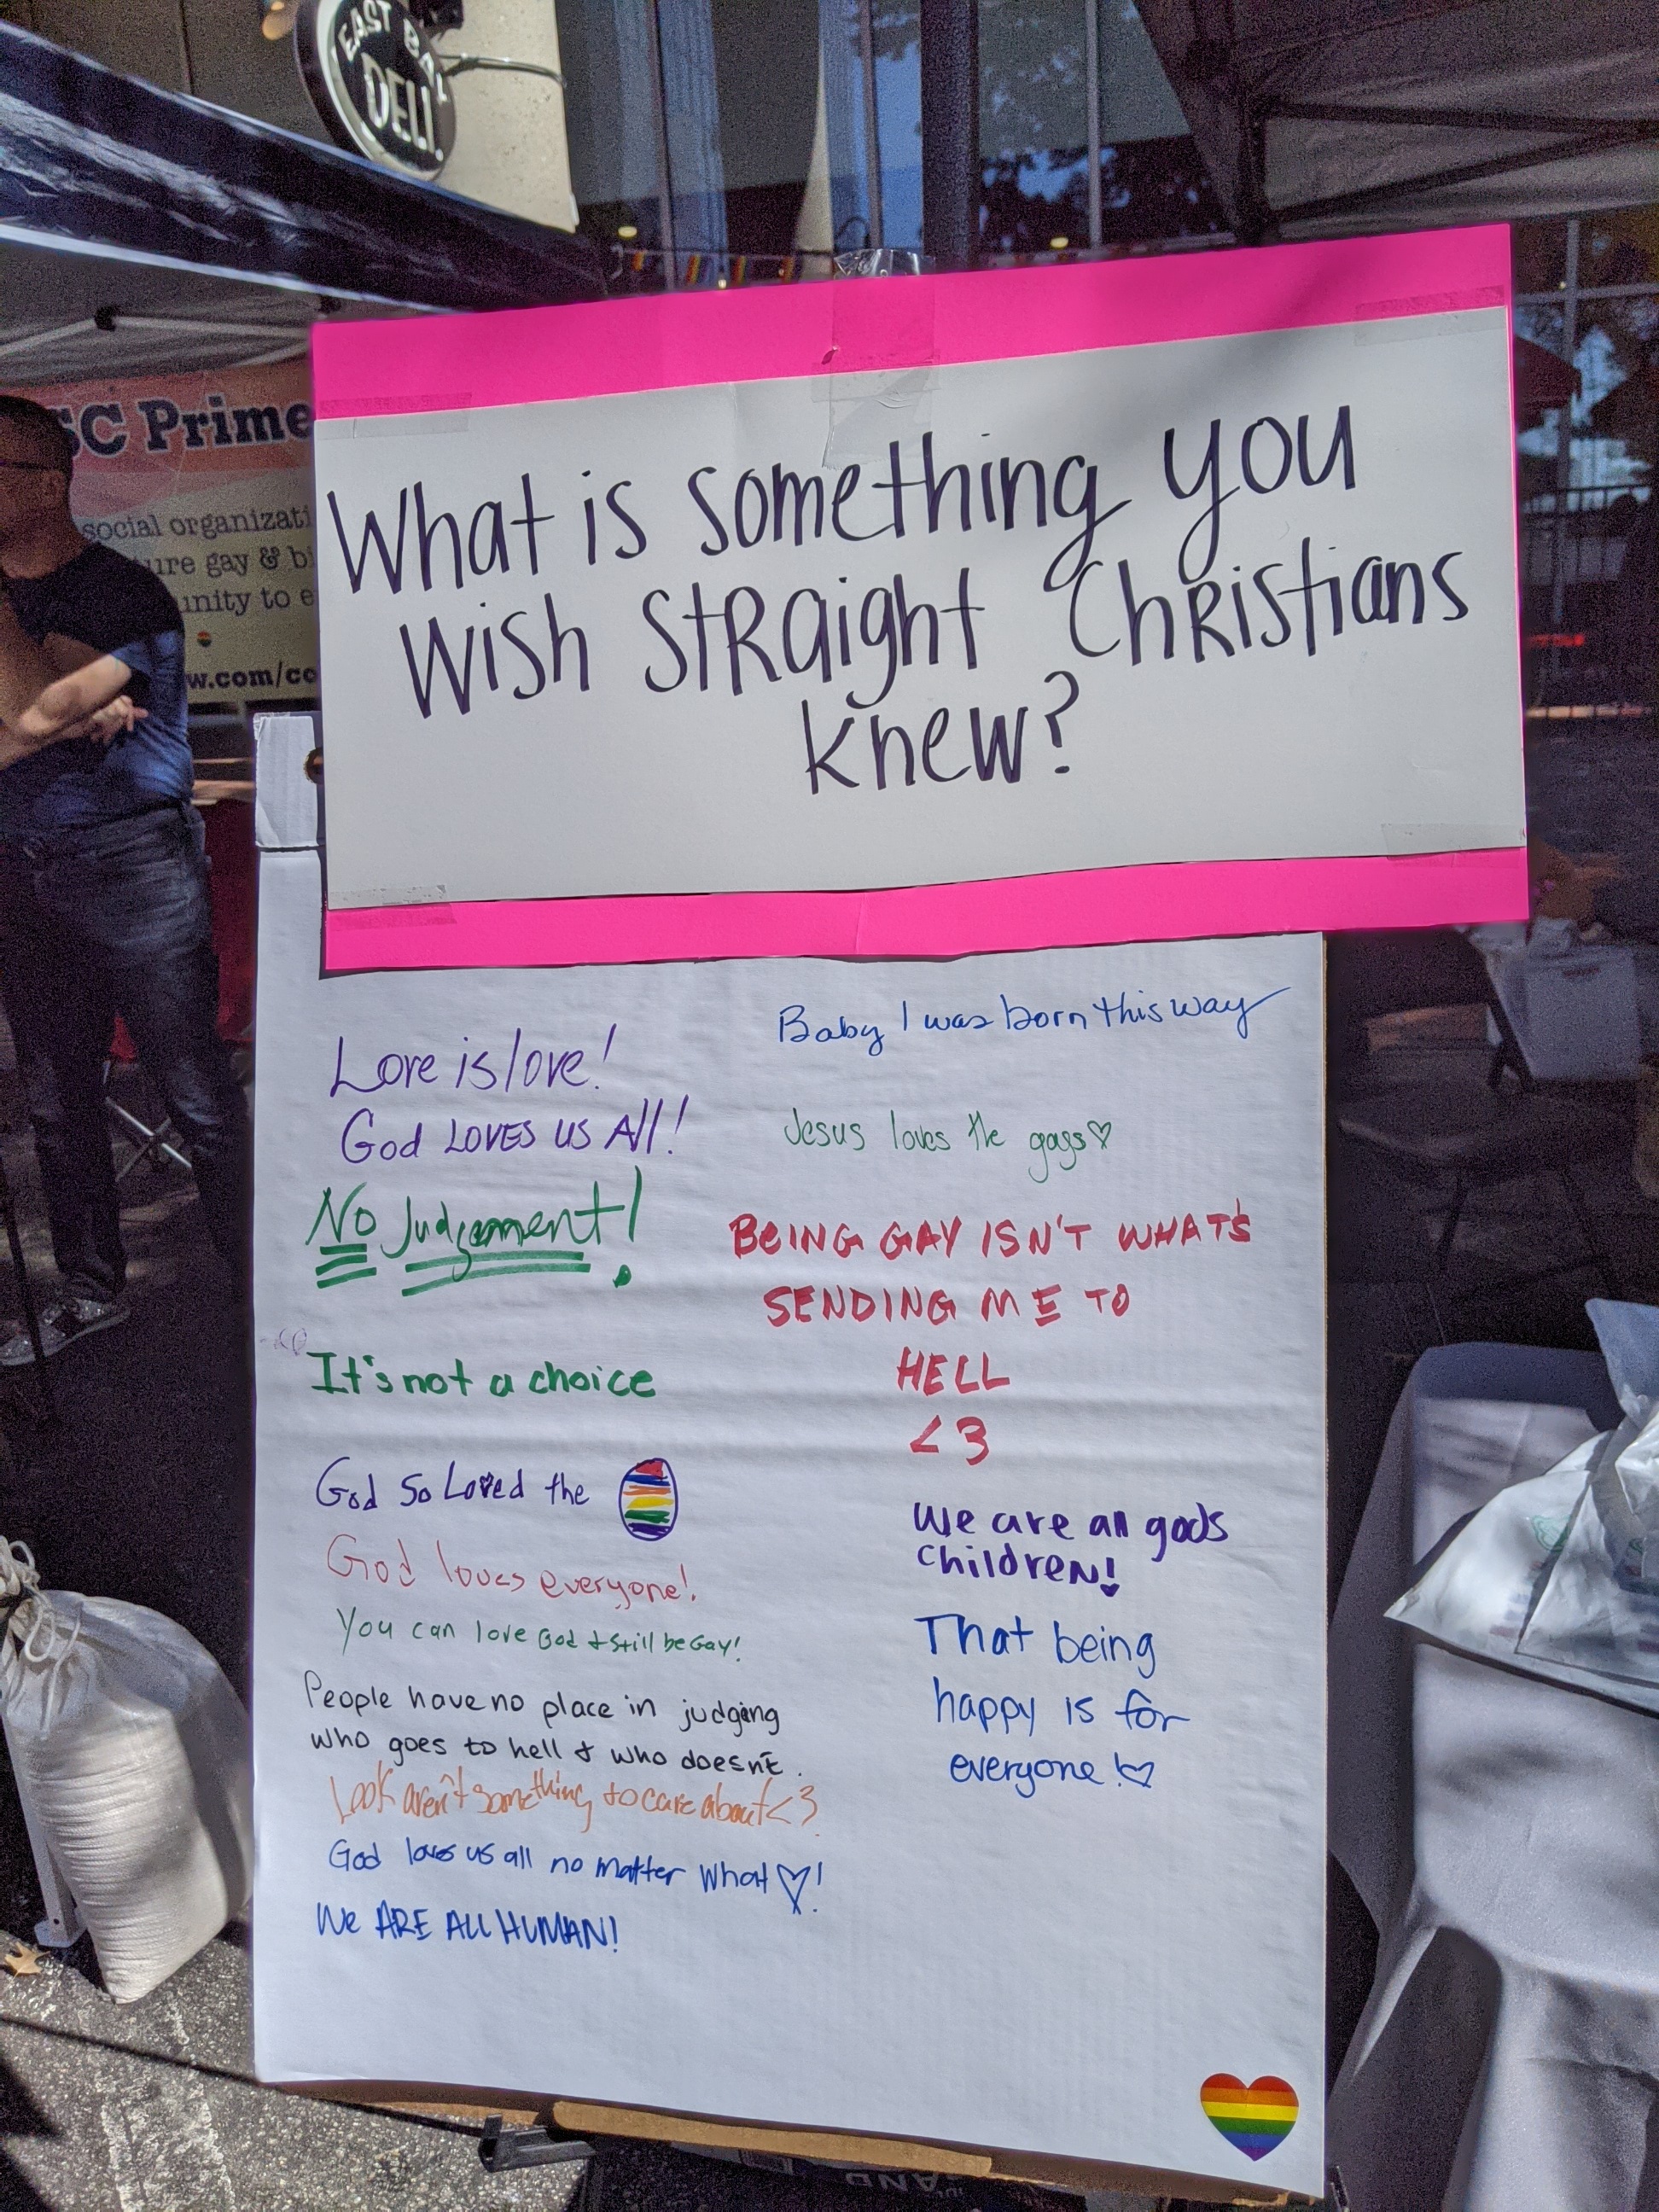 EAST BAY
DELI
SC Prime
social organizati
ure gay & bi
unity to e
w.com/co
What is something you
wish straight Christians
knew?
Love is love!
God LOVES us All!
No Judgement!
It's not a choice
God so Loved the
God loves everyone!
You can love God & still be Gay!
People have no place in judging
who goes to hell & who doesn't.
Look aren't something to care about <3
God loves us all no matter what ♡!
We ARE ALL HUMAN!
Baby I was born this way
Jesus loves the gays ♡
BEING GAY ISN'T WHAT'S
SENDING ME TO
HELL
<3
We are all gods
children!
That being
happy is for
everyone! ♡